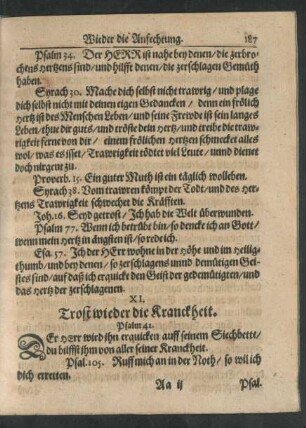 Wieder die Anfechtung. 187
Psalm 34. Der HERR ist nahe bey denen / die zerbro-
chens Hertzens sind / und hilfft denen / die zerschlagen Gemüth
haben.
Syrach 30. Mache dich selbst nicht trawrig / und plage
dich selbst nicht mit deinen eigen Gedancken / denn ein frölich
Hertz ist des Menschen Leben / und seine Frewde ist sein langes
Leben / thue dir guts / und tröste dein Hertz / und treibe die traw-
rigkeit ferne von dir / einem frölichen Hertzen schmecket alles
wol / was es isset / Trawrigkeit tödtet viel Leute / unnd dienet
doch nirgent zu.
Proverb. 15. Ein guter Muth ist ein täglich wolleben.
Syrach 38. Vom trawren kömpt der Todt / und des Her-
tzens Trawrigkeit schwechet die Kräfften.
Joh. 16. Seyd getrost / Ich hab die Welt überwunden.
Psalm 77. Wenn ich betrübt bin / so dencke ich an Gott /
wenn mein Hertz in ängsten ist / so rede ich.
Esa. 57. Ich der HErr wohne in der Höhe und im Heilig-
thumb / und bey denen / so zerschlagens unnd demütigen Gei-
stes sind / auf daß ich erquickt den Geist der gedemütigten / und
das Hertz der zerschlagenen.
XI.
Trost wieder die Kranckheit.
Psalm 41.
DEr HErr wird ihn erquicken auff seinem Siechbette /
du hilffst ihm von aller seiner Kranckheit.
Psal. 105. Ruff mich an in der Noth / so wil ich
dich erretten.
Aa ij Psal.